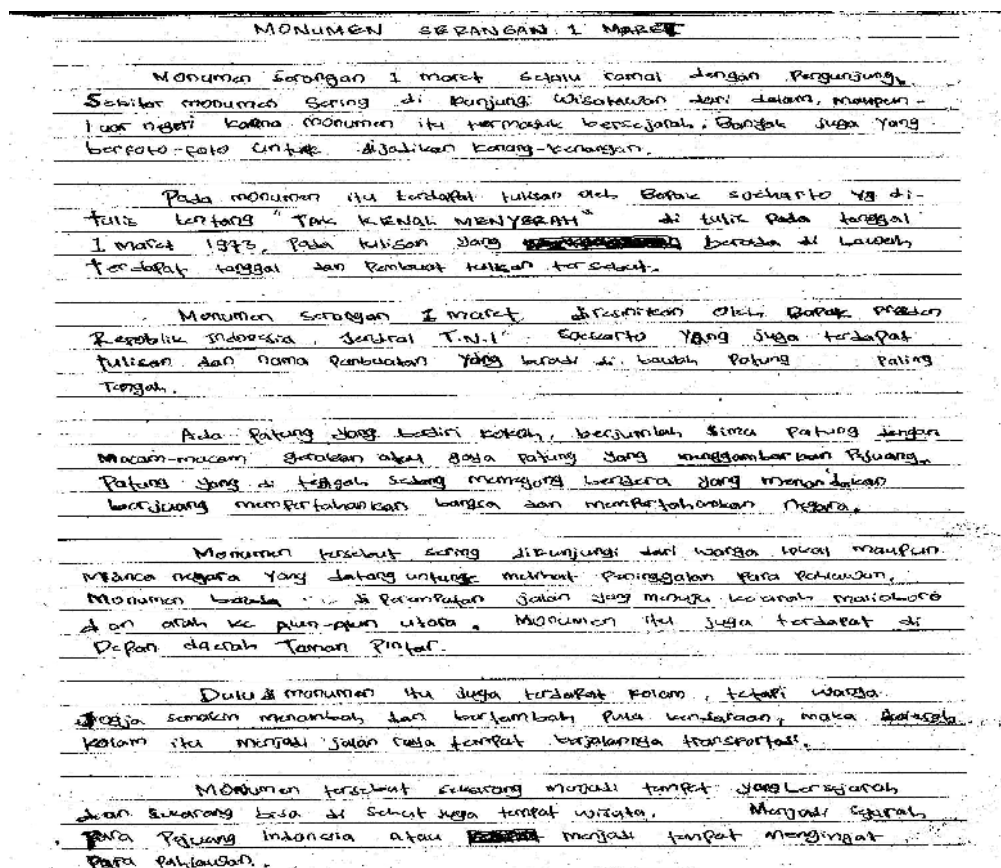 MONUMEN SERANGAN 1 MARET
Monumen Serangan 1 maret selalu ramai dengan Pengunjung,
Sekitar monumen Sering di kunjungi Wisatawan dari dalam, maupun -
luar negeri karna monumen itu termasuk bersejarah, Banyak juga Yang
berfoto-foto untuk dijadikan kenang-kenangan.
Pada monumen itu terdapat tulisan oleh Bapak soeharto yg di-
tulis tentang " TAK KENAL MENYERAH " di tulis Pada tanggal
1 Maret 1973, Pada tulisan yang berada di bawah
Terdapat tanggal dan Pembuat tulisan tersebut.
Monumen serangan 1 maret diresmikan oleh Bapak Presiden
Republik Indonesia Jendral T.N.I Soeharto Yang juga terdapat
tulisan dan nama Pembuatan Yang berada di bawah Patung Paling
Tengah.
Ada Patung yang berdiri kokoh, berjumlah lima Patung dengan
Macam-macam gerakan atau gaya Patung yang menggambarkan Pejuang,
Patung yang di tengah sedang memegang bendera yang menandakan
berjuang mempertahankan bangsa dan mempertahankan negara.
Monumen tersebut sering dikunjungi dari warga lokal maupun
Manca negara Yang datang untuk melihat Peninggalan Para Pahlawan,
Monumen berada di Perempatan jalan yang menuju ke arah malioboro
dan arah ke alun-alun utara. Monumen itu juga terdapat di
Depan daerah Taman Pintar.
Dulu di monumen itu juga terdapat kolam, tetapi warga
Jogja semakin menambah dan bertambah Pula kendaraan, maka
kolam itu menjadi jalan raya tempat berjalannya transportasi.
Monumen tersebut sekarang menjadi tempat yang bersejarah
dan sekarang bisa di sebut juga tempat wisata. Menjadi Sejarah
Para Pejuang indonesia atau menjadi tempat mengingat
Para Pahlawan.